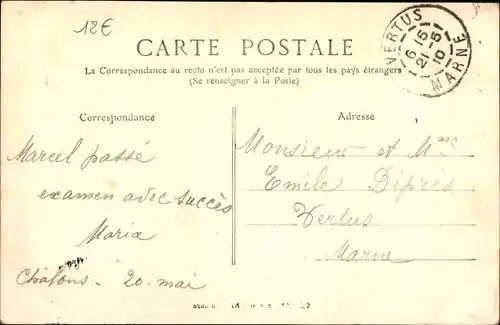 12€
CARTE POSTALE
La Correspondance au recto n'est pas acceptée par tous les pays étrangers
(Se renseigner à la Poste)
VERTUS
6 15
21-5
10
MARNE
Correspondance
Marcel passé
examen avec succès
Maria
Châlons - 20 mai
Adresse
Monsieur et Mme
Emile Déprès
Vertus
Marne